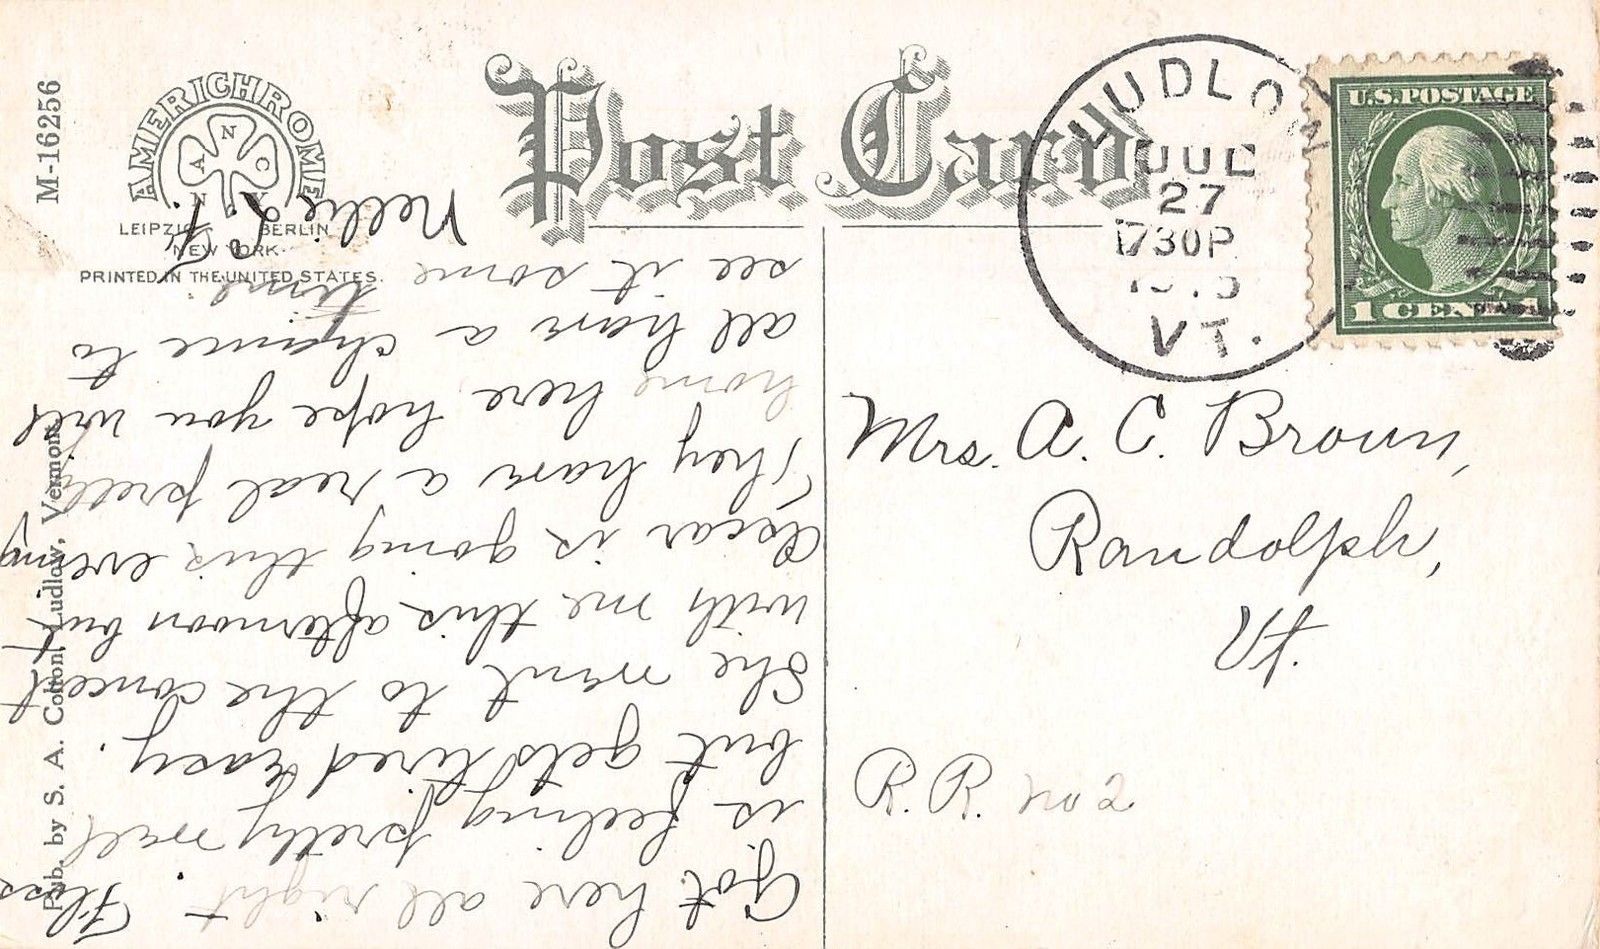 M-16256
AMERICHROME
ANCNY
LEIPZIG BERLIN
NEW YORK
PRINTED IN THE UNITED STATES.
Post Card
LUDLOW
JUL
27
730P
VT.
U.S. POSTAGE
1 CENT 1
Pub. by S. A. Cotton, Ludlow, Vermont.
Got here all right. Floss
is feeling pretty well
but gets tired easy.
She went to the concert
with me this afternoon but
Oscar is going this evening
They have a real pretty
home here hope you will
all have a chance to
see it some time
Nellie L. F.
Mrs. A. C. Brown,
Randolph,
Vt.
R. R. no 2